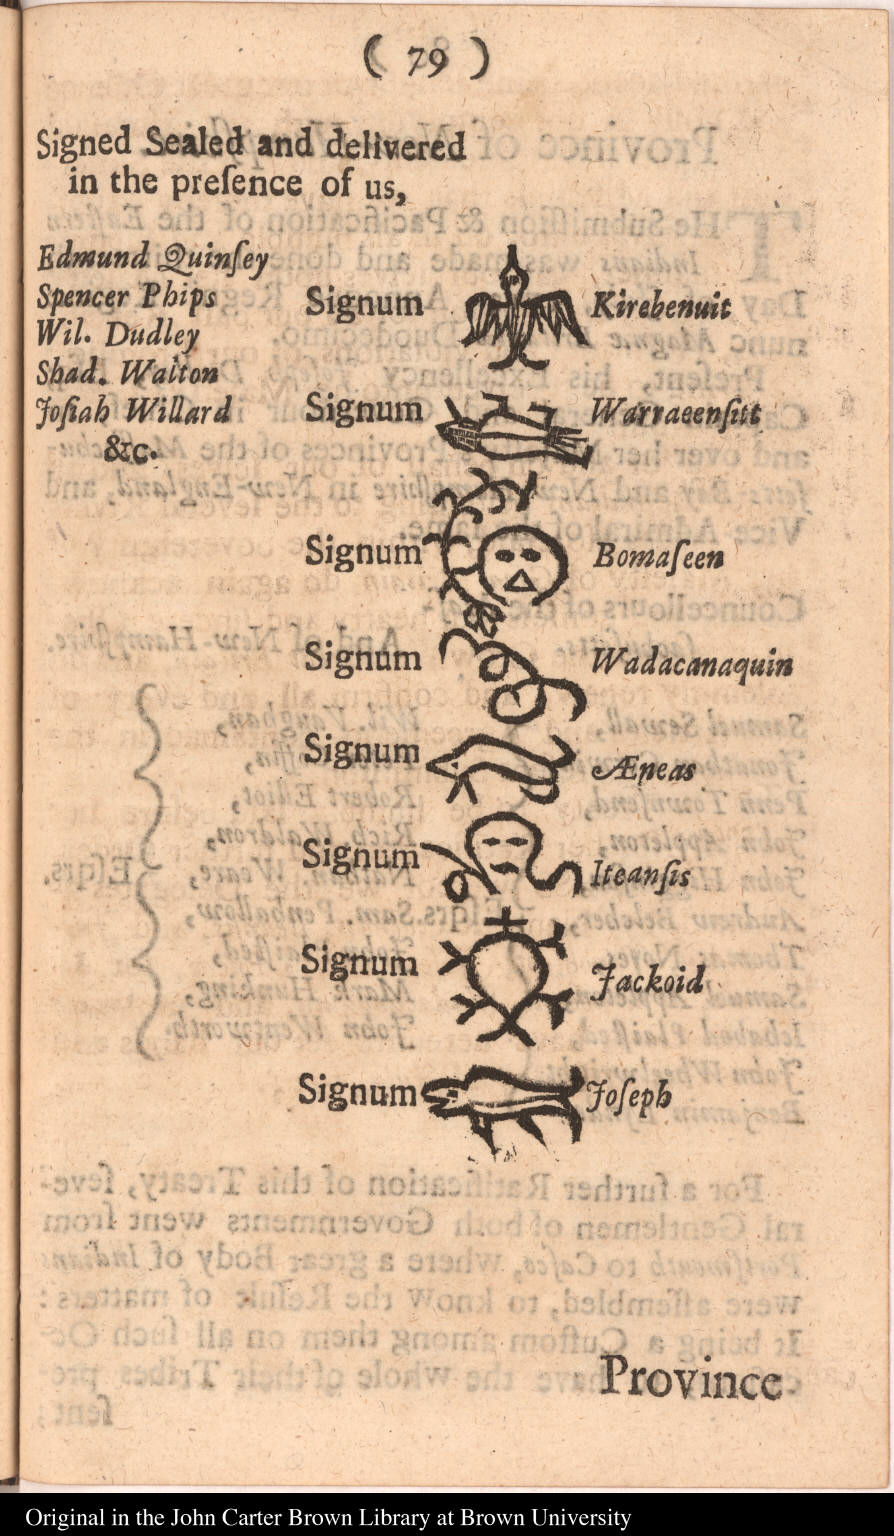 ( 79 )
Signed Sealed and delivered
in the preſence of us,
Edmund Quinſey
Spencer Phips
Wil. Dudley
Shad. Walton
Joſiah Willard
&c.
Signum Kirebenuit
Signum Warraeenſitt
Signum Bomaſeen
Signum Wadacanaquin
Signum Æneas
Signum Iteanſis
Signum Jackoid
Signum Joſeph
Province
Original in the John Carter Brown Library at Brown University